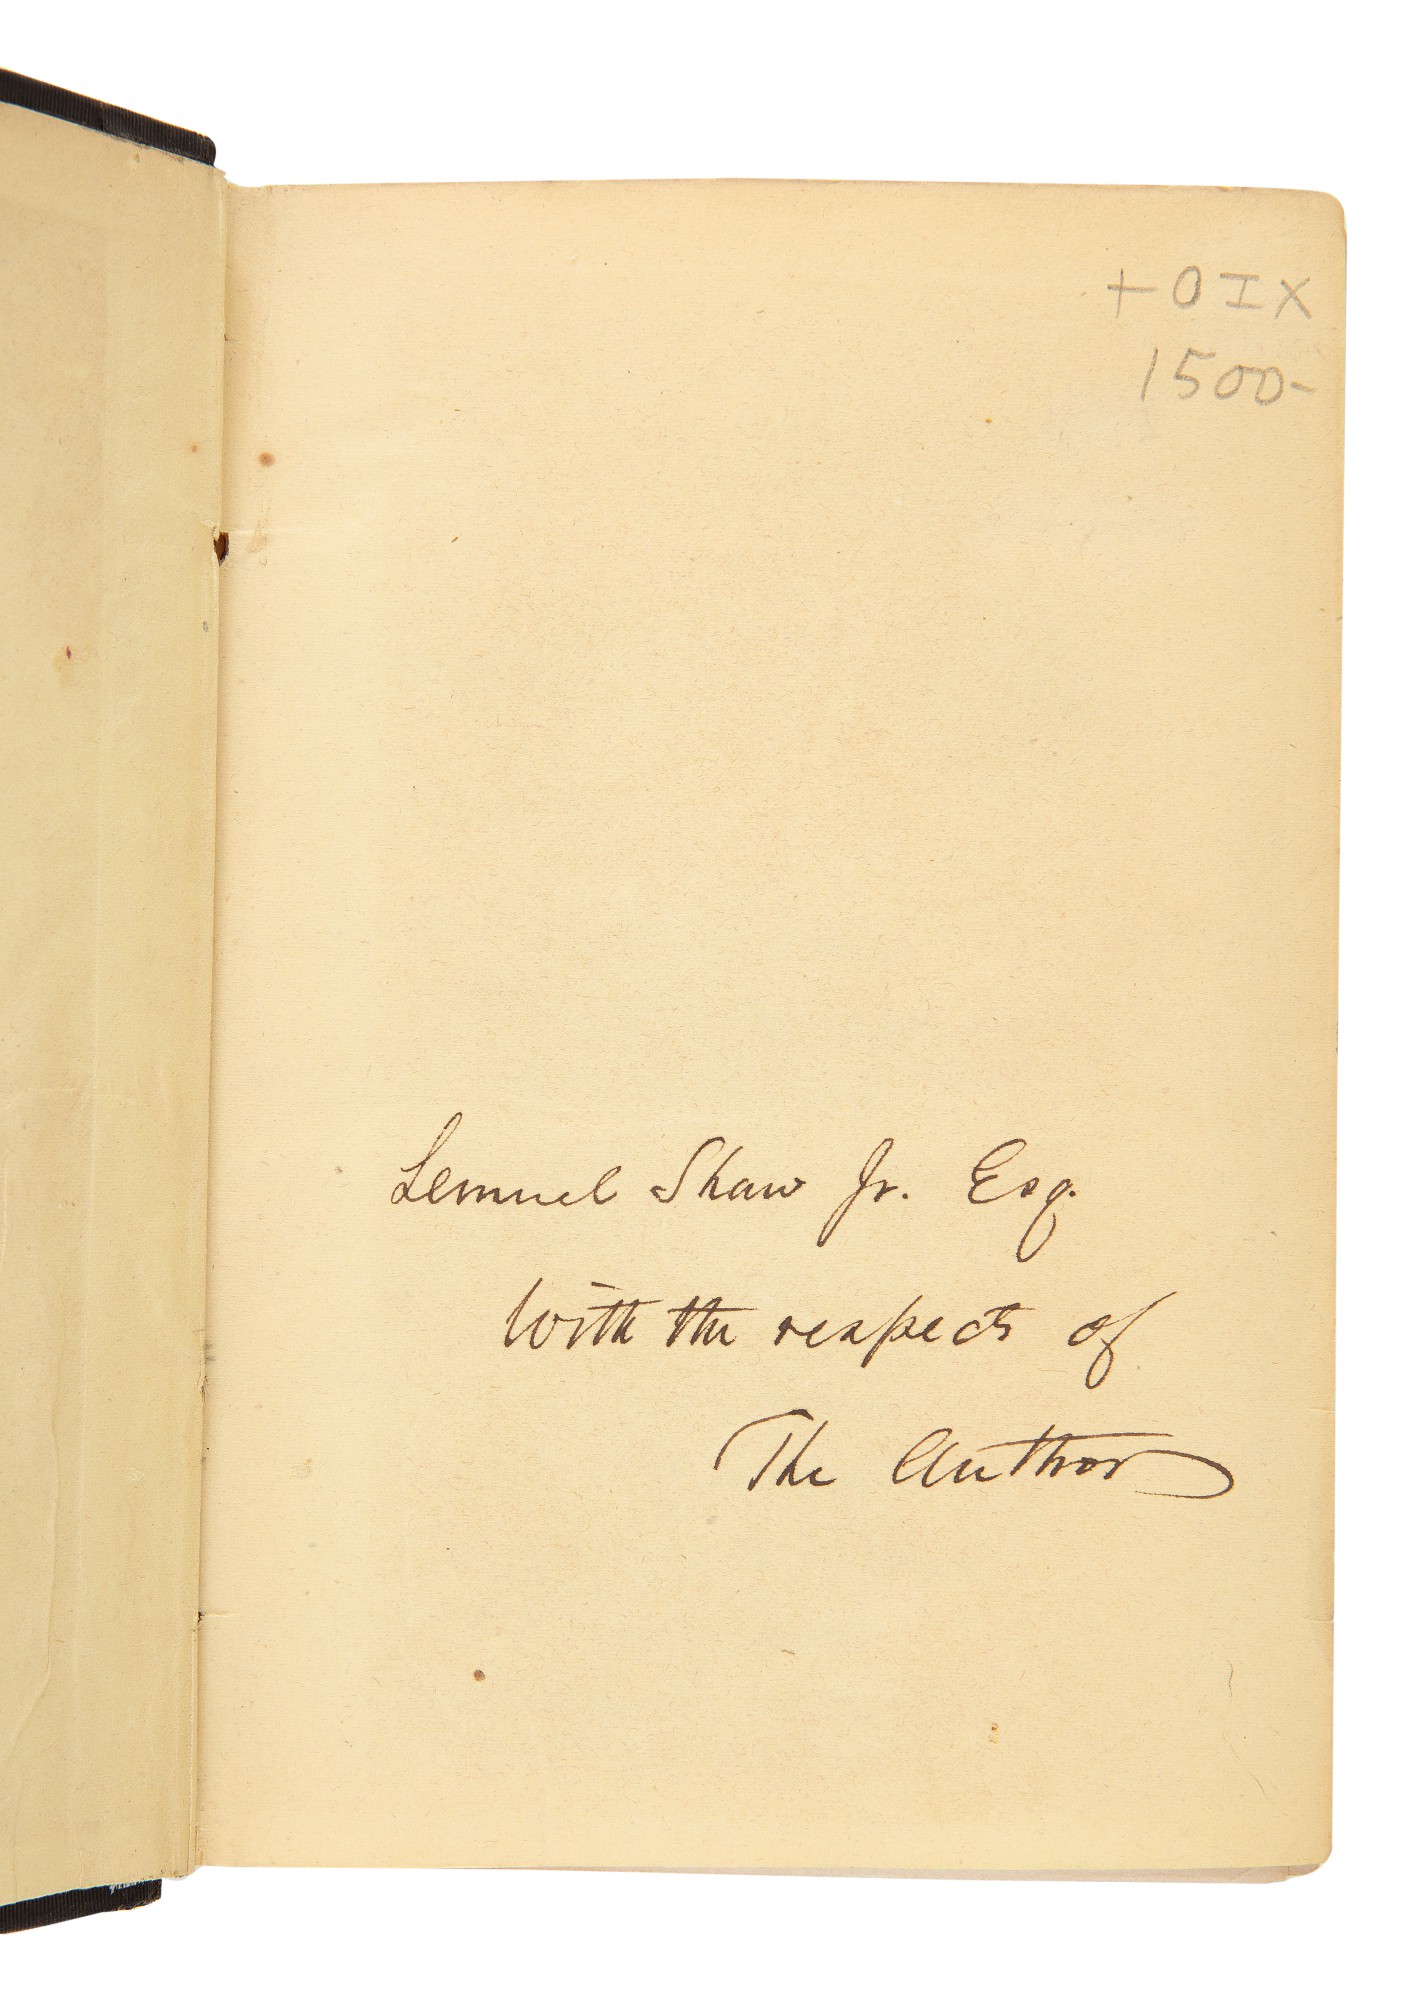 + O I X
1500-
Lemuel Shaw Jr. Esq.
With the respects of
The Author